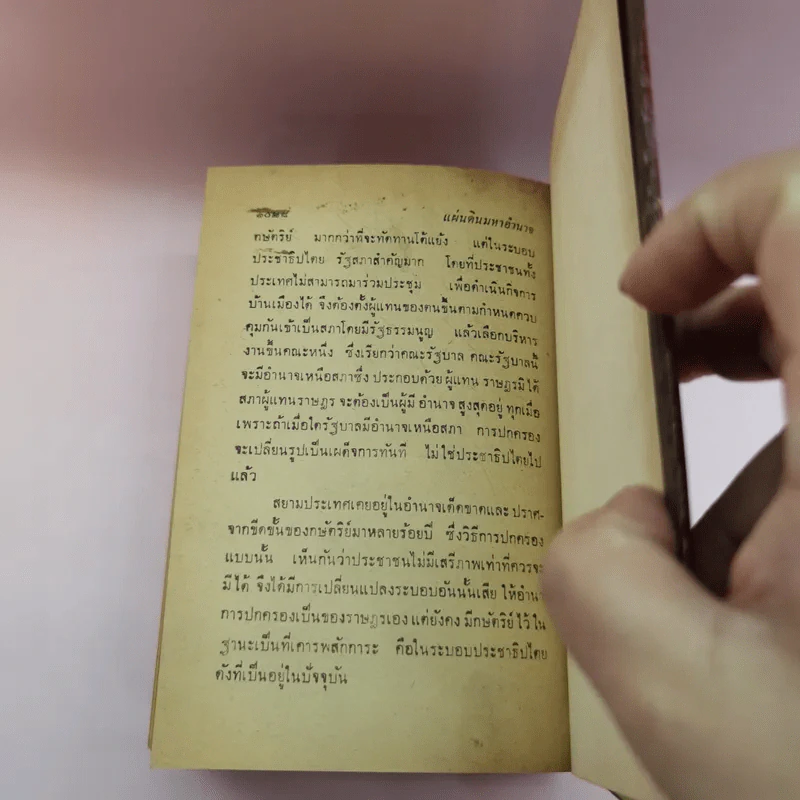 แผ่นดินมหาอำนาจ
กษัตริย์ มากกว่าที่จะทัดทานโต้แย้ง แต่ในระบอบ
ประชาธิปไตย รัฐสภาสำคัญมาก โดยที่ประชาชนทั้ง
ประเทศไม่สามารถมาร่วมประชุม เพื่อดำเนินกิจการ
บ้านเมืองได้ จึงต้องตั้งผู้แทนของตนขึ้นตามกำหนดควบ
คุมกันเข้าเป็นสภาโดยมีรัฐธรรมนูญ แล้วเลือกบริหาร
งานขึ้นคณะหนึ่ง ซึ่งเรียกว่าคณะรัฐบาล คณะรัฐบาลนี้
จะมีอำนาจเหนือสภาซึ่ง ประกอบด้วย ผู้แทน ราษฎรมิได้
สภาผู้แทนราษฎร จะต้องเป็นผู้มี อำนาจ สูงสุดอยู่ ทุกเมื่อ
เพราะถ้าเมื่อใดรัฐบาลมีอำนาจเหนือสภา การปกครอง
จะเปลี่ยนรูปเป็นเผด็จการทันที ไม่ใช่ประชาธิปไตยไป
แล้ว
สยามประเทศเคยอยู่ในอำนาจเด็ดขาดและ ปราศ-
จากขีดขั้นของกษัตริย์มาหลายร้อยปี ซึ่งวิธีการปกครอง
แบบนั้น เห็นกันว่าประชาชนไม่มีเสรีภาพเท่าที่ควรจะ
มีได้ จึงได้มีการเปลี่ยนแปลงระบอบอันนั้นเสีย ให้อำนา
การปกครองเป็นของราษฎรเอง แต่ยังคง มีกษัตริย์ ไว้ ใน
ฐานะเป็นที่เคารพสักการะ คือในระบอบประชาธิปไตย
ดังที่เป็นอยู่ในปัจจุบัน